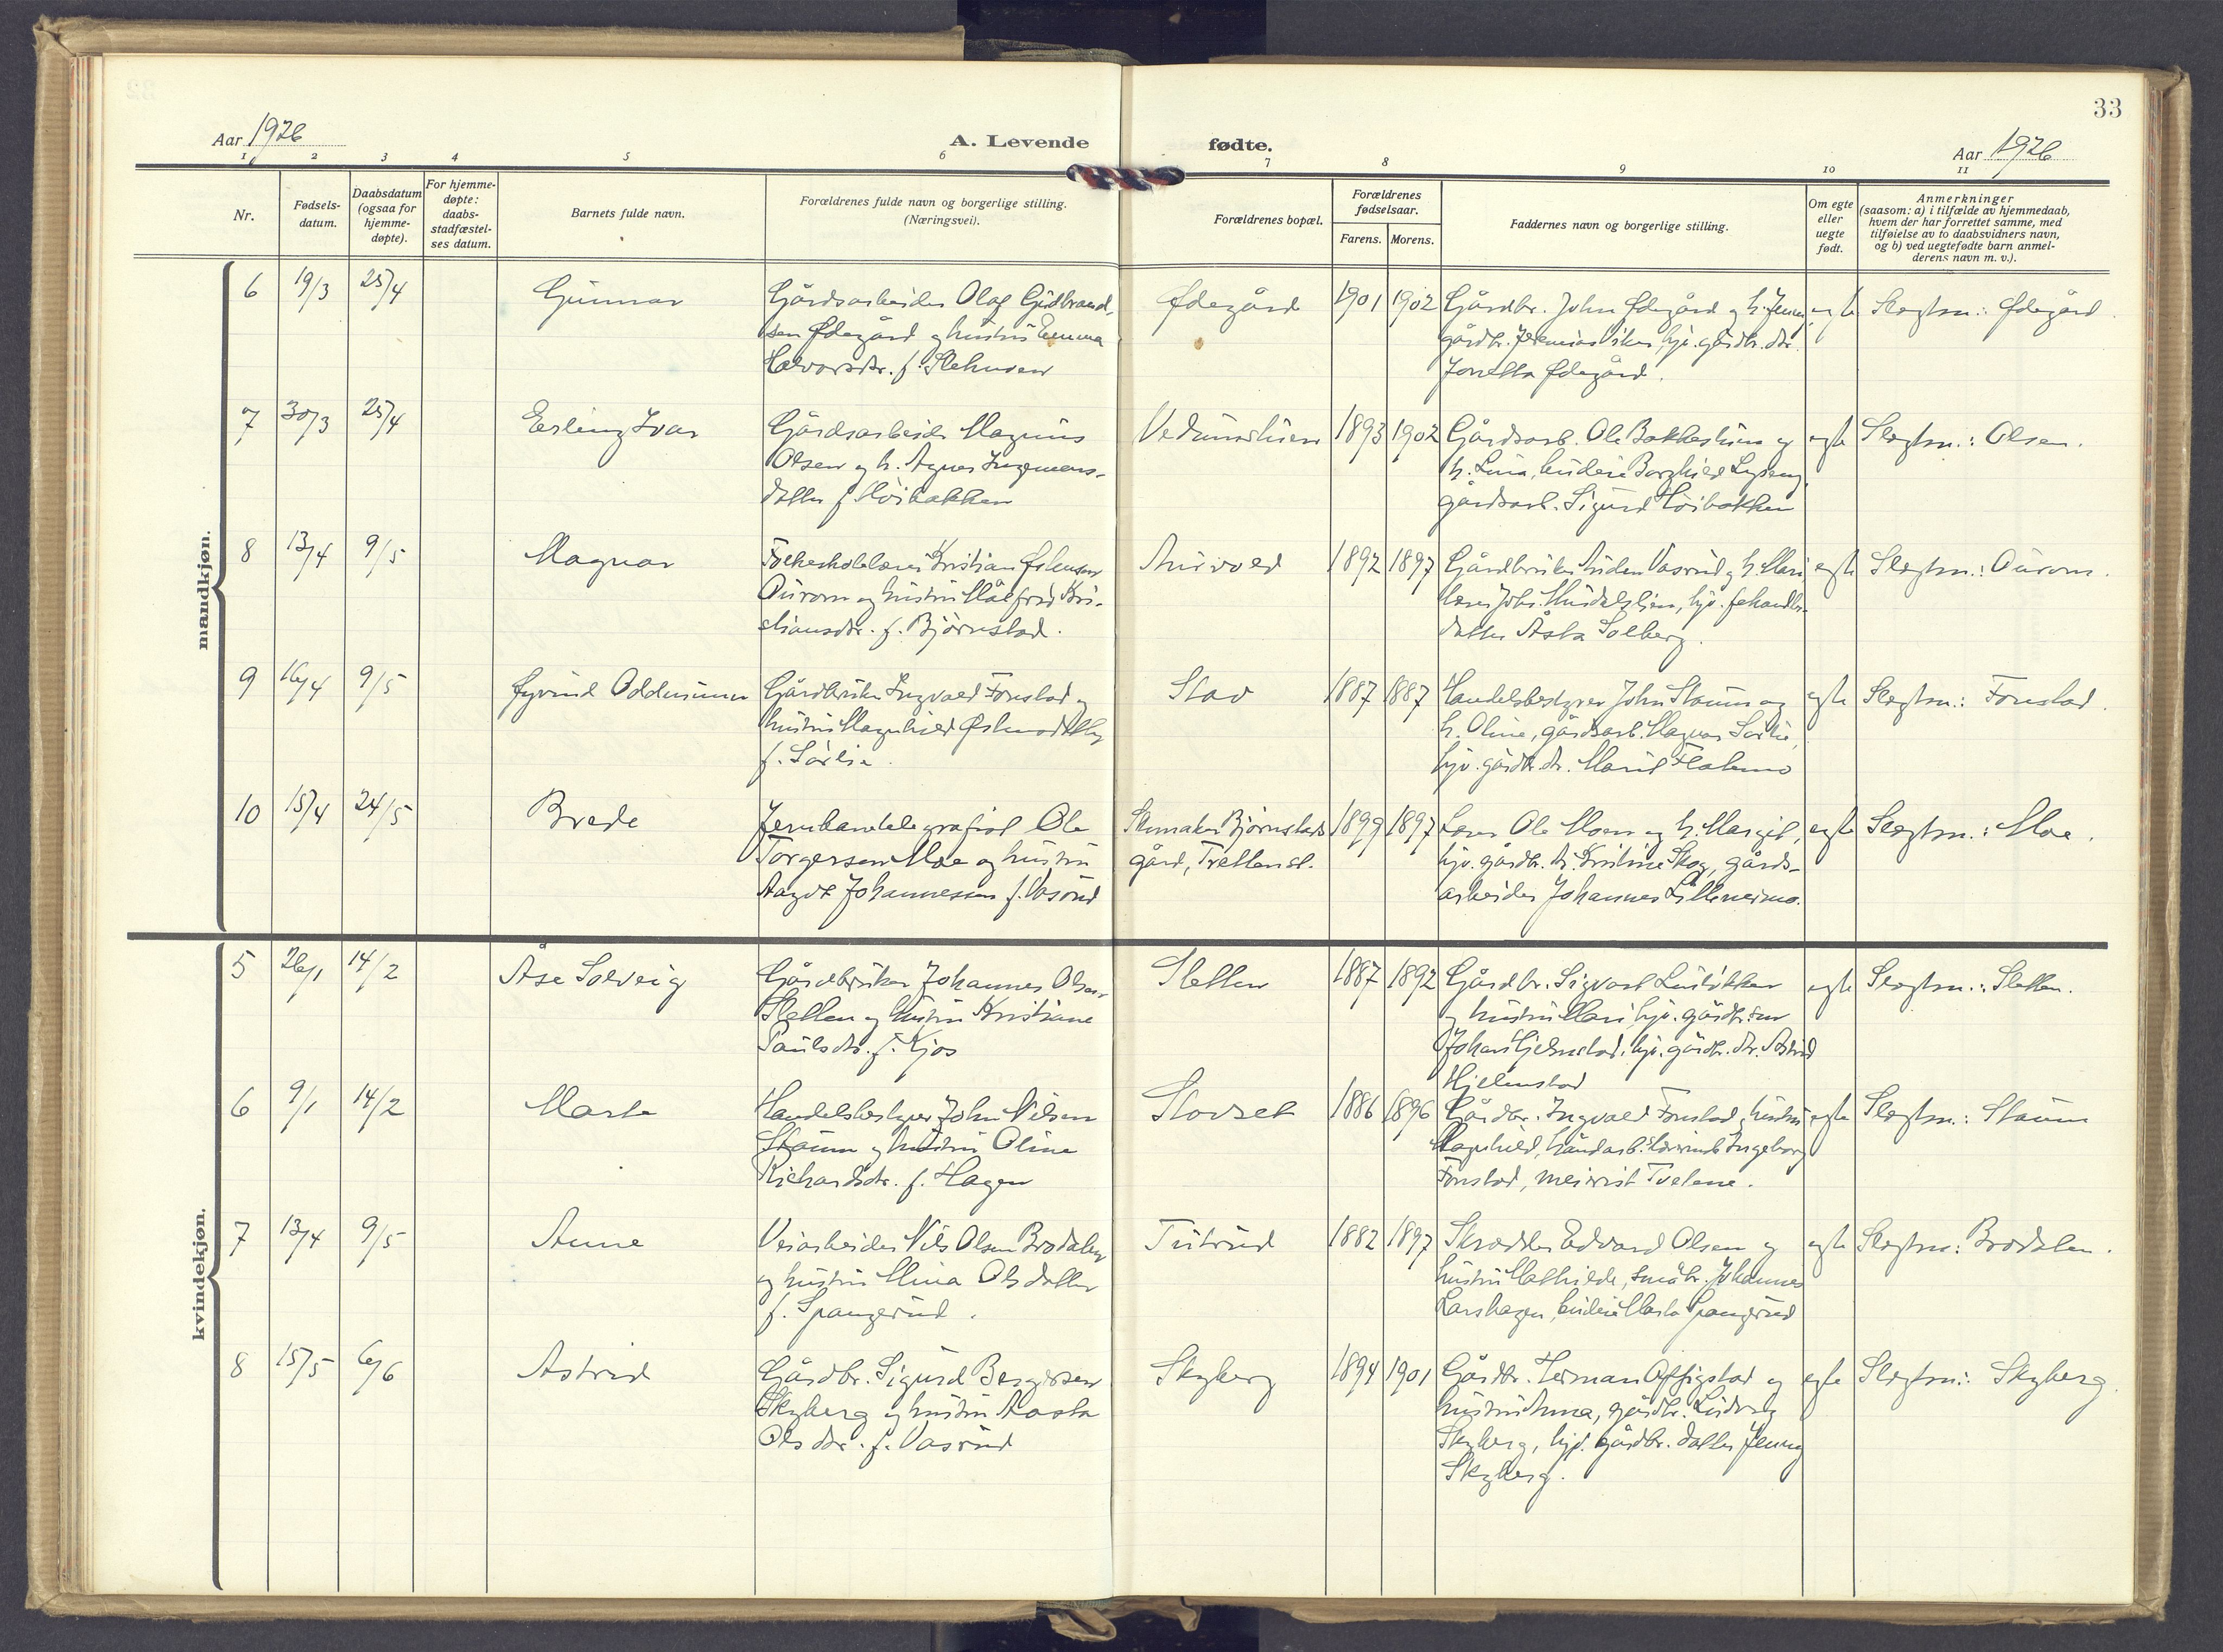 33
Aar 1926
A. Levende
fødte.
Aar 1926
1 2 3 4 5 6 7 8 9 10 11
Nr.
Fødsels-
datum.
Daabsdatum
(ogsaa for
hjemme-
døpte).
For hjemme-
døpte:
daabs-
stadfæstel-
ses datum.
Barnets fulde navn.
Forældrenes fulde navn og borgerlige stilling.
(Næringsvei).
Forældrenes bopæl.
Forældrenes
fødselsaar.
Farens. Morens.
Faddernes navn og borgerlige stilling.
Om egte
eller
uegte
født.
Anmerkninger
(saasom: a) i tilfælde av hjemmedaab,
hvem der har forrettet samme, med
tilføielse av to daabsvidners navn,
og b) ved uegtefødte barn anmel-
derens navn m. v.).
mandkjøn.
6 19/3 25/4 Gunnar
Gårdsarbeider Olaf Gudbrand-
sen Ødegård og hustru Emma
Halvorsdtr. f.
Ødegård 1901 1902
Gårdbr. John Ødegård og h. Jenny,
gårdbr. Jeremias hjv. gårdbr. dtr.
Ødegård.
egte Slegtsn.: Ødegård.
7 30/3 25/4 Erling Ivar
Gårdsarbeider Magnus
Olsen og h. Agnes Ingemans-
datter f. Høibakken
1893 1902
Gårdsarb. Ole og
h. Lina, budeie Borghild
gårdsarb. Sigurd Høibakken
egte Slegtsn.: Olsen.
8 13/4 9/5 Magnar
Folkeskolelærer Kristian
Aurom og hustru Målfrid Kri-
stiansdtr. f. Bjørnstad.
Aurvold 1892 1897
Gårdbruker Auden Vasrud og h. Mari
lærer Johs. hjv. fehandler-
datter Åsta Solberg.
egte Slegtsn.: Aurom.
9 16/4 9/5 Øyvind Oddmunn
Gårdbruker Ingvald Fonstad og
hustru Magnhild
f. Sørlie.
Stav 1887 1887
Handelsbestyrer John Staum og
h. Oline, gårdsarb. Magnar Sørlie,
hjv. gårdbr. dtr. Marit
egte Slegtsn.: Fonstad.
10 15/4 24/5 Brede
Jernbanetelegrafist Ole
Torgersen Moe og hustru
Aagot Johannessen f. Vasrud
Skomaker Bjørnstads
gård, Tretten st.
1899 1897
Lærer Ole Moen og h. Margit,
hjv. gårdbr. dtr. Kristine Skog, gårds-
arbeider Johannes
egte Slegtsn.: Moe.
kvindekjøn.
5 26/1 14/2 Åse Solveig
Gårdbruker Johannes Olsen
Sletten og hustru Kristiane
Paulsdtr. f. Kjos
Sletten 1887 1892
Gårdbr. Sigvart
og hustru Mari, hjv. gårdbr. søn
Johan Hjelmstad, hjv. gårdbr. dtr. Astrid
Hjelmstad
egte Slegtsn.: Sletten.
6 9/1 14/2 Marte
Handelsbestyrer John Nilsen
Staum og hustru Oline
Richardsdtr. f. Hagen
Stovset 1886 1896
Gårdbr. Ingvald Fonstad og hustru
Magnhild, håndarb.lærerinde Ingeborg
Fonstad, meierist Tvetene.
egte Slegtsn.: Staum
7 13/4 9/5 Anne
Veiarbeider Nils Olsen Brodalen
og hustru Mina Olsdatter
f. Spangrud.
Tutrud 1882 1897
Skrædder Edvard Olsen og
hustru Mathilde, småbr. Johannes
Larshagen, budeie Marta Spangrud
egte Slegtsn.: Brodalen.
8 15/5 6/6 Astrid
Gårdbr. Sigurd Bergersen
Skyberg og hustru Aasta
Olsdtr. f. Vasrud
Skyberg 1894 1901
Gårdbr. Herman Offigstad og
hustru Anna, gårdbr. Ludvig
Skyberg, hjv. gårdbr. datter Jenny
Skyberg.
egte Slegtsn.: Skyberg.